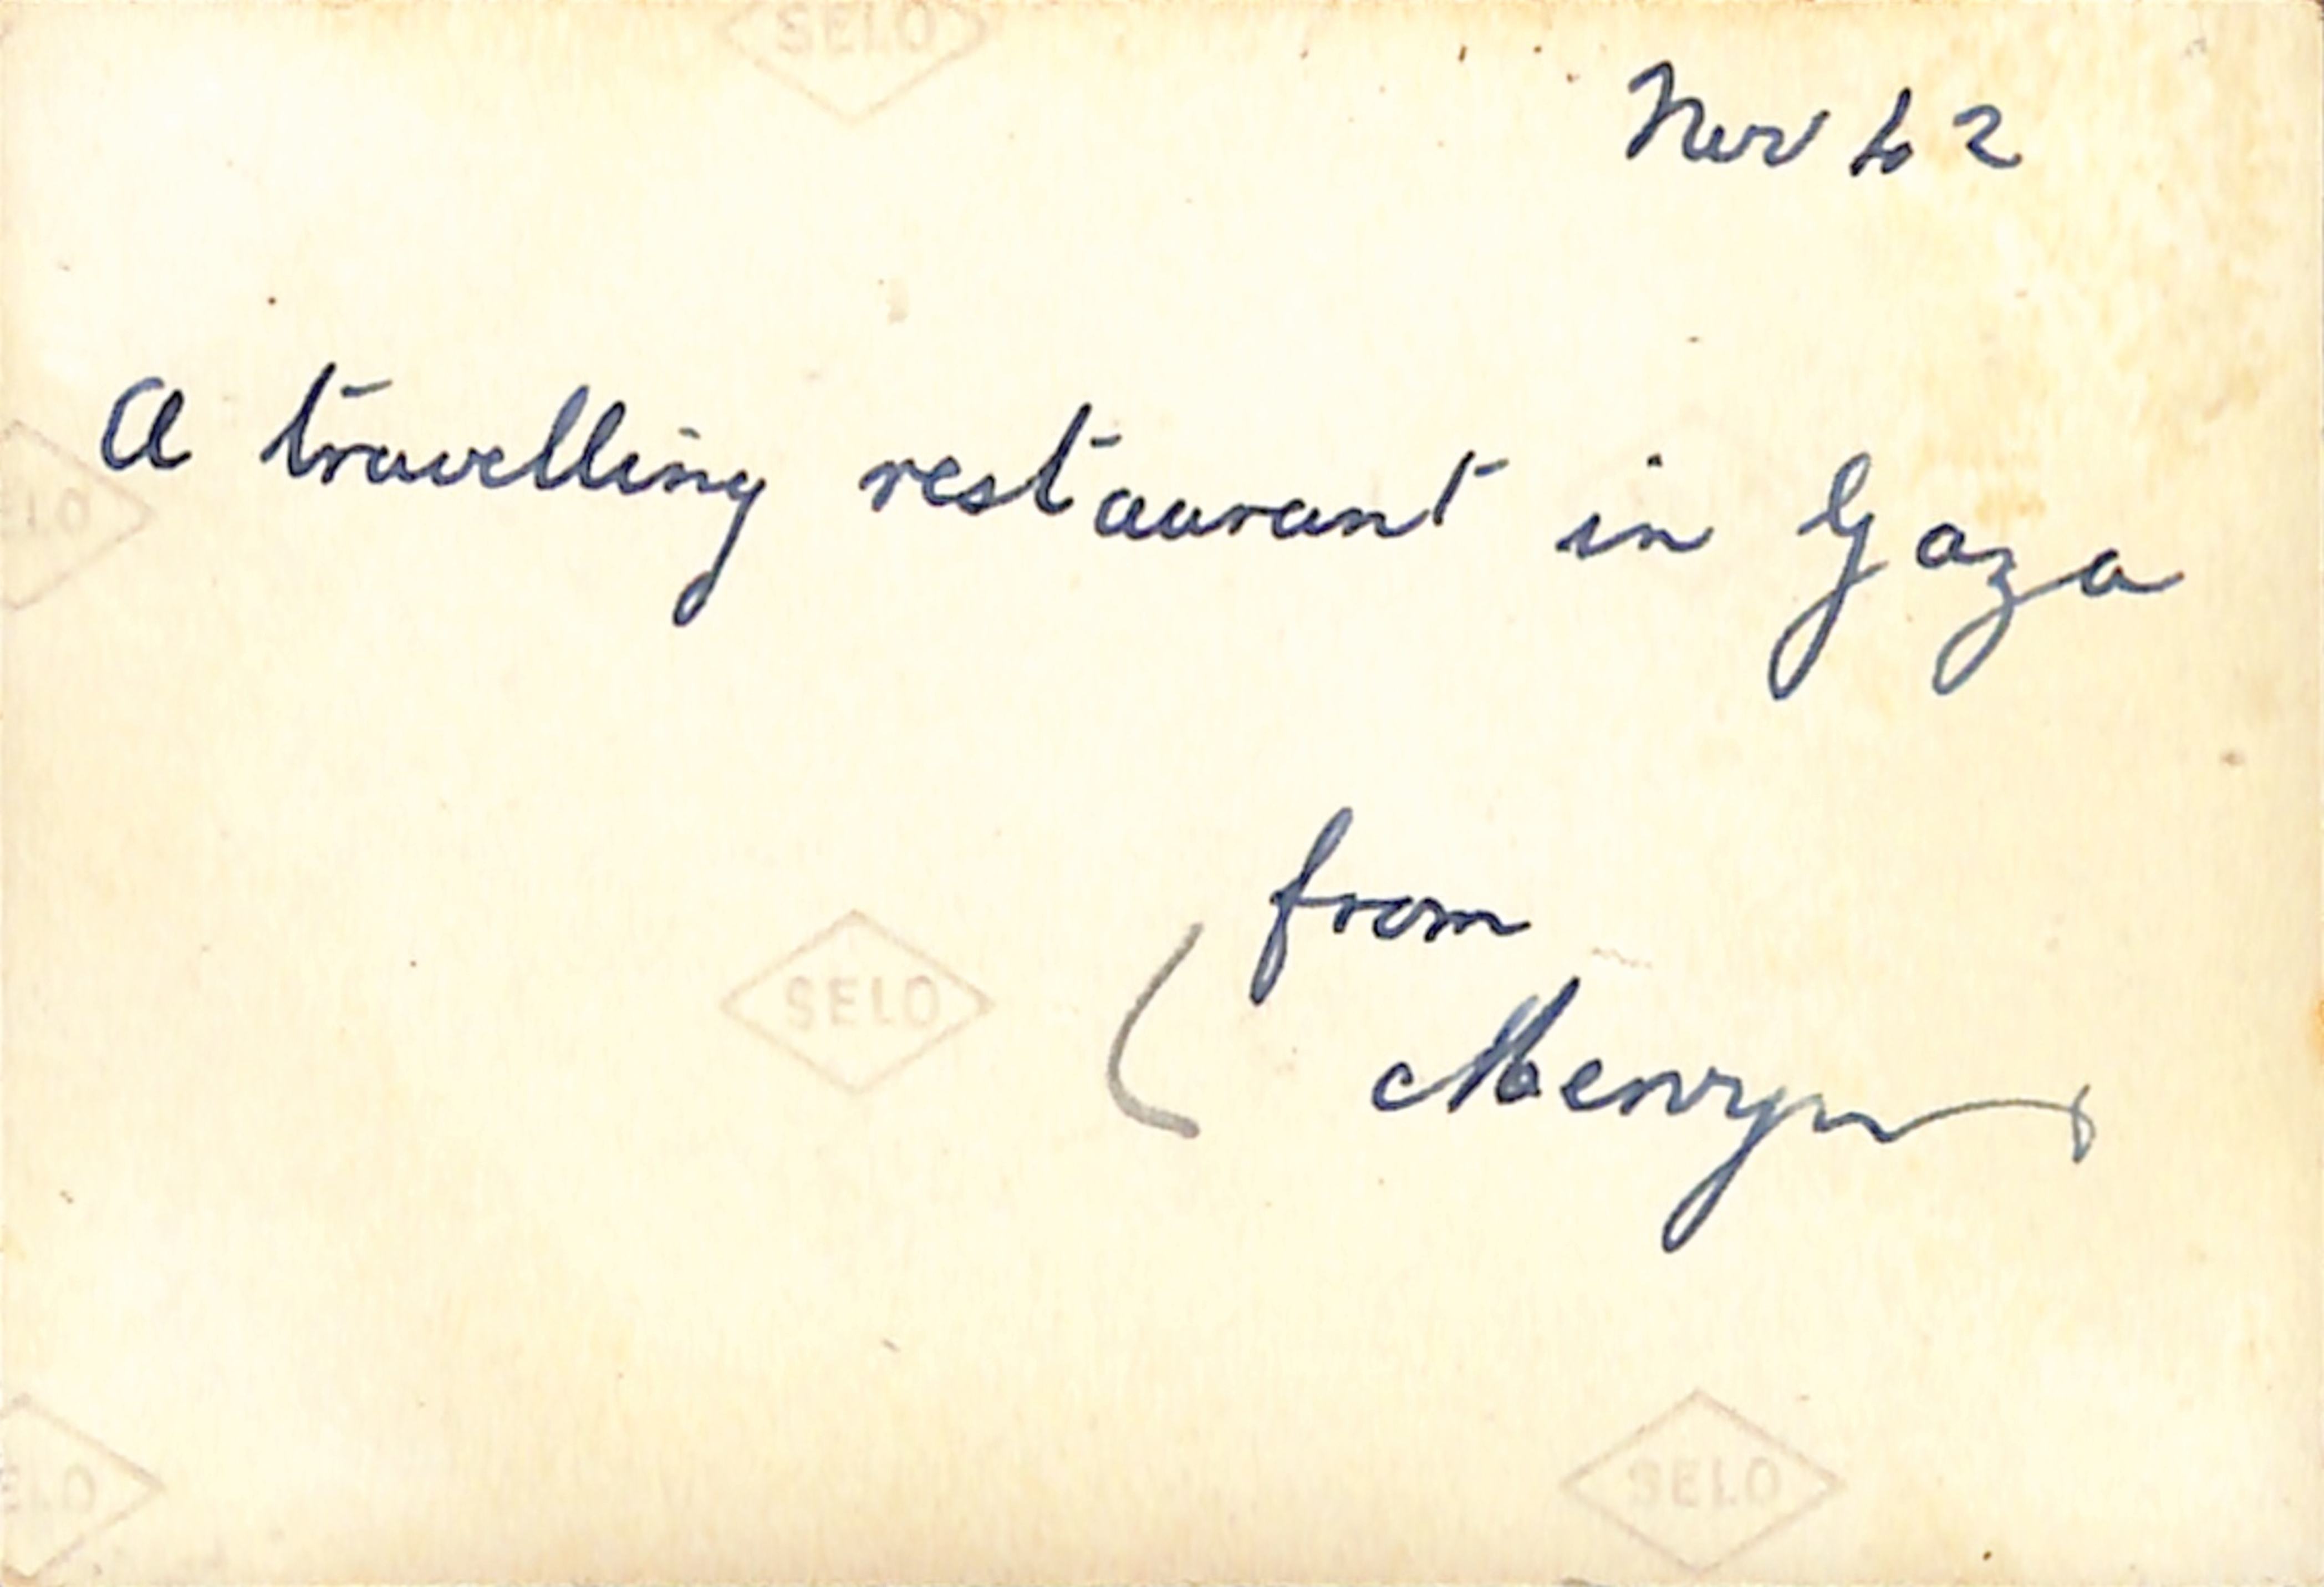 SELO
Nov 42
A travelling restaurant in Gaza
from
SELO
Mervyn
SELO